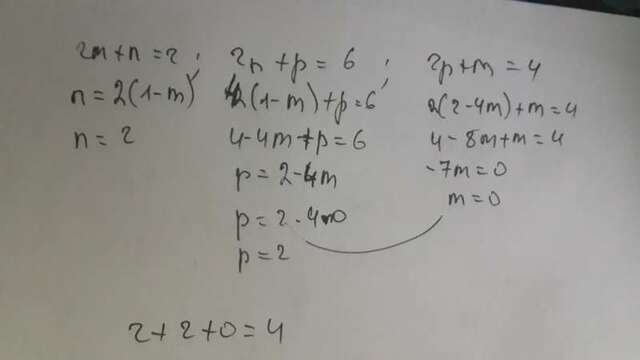 2m+n=2, 2n+p=6, 2p+m=4
n=2(1-m) 4(1-m)+p=6 2(2-4m)+m=4
n=2 4-4m+p=6 4-8m+m=4
p=2-4m -7m=0
m=0
p=2-4·0
p=2
2+2+0=4